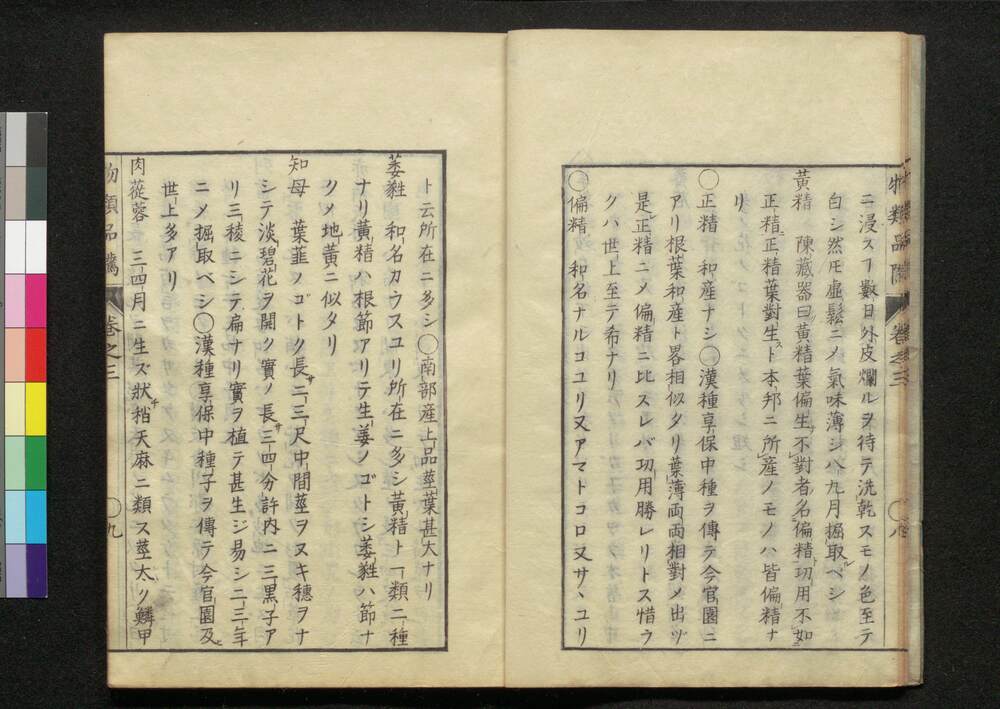 物類品隲 巻之三 〇八
ニ浸スヿ數日外皮爛ルヲ待テ洗乾スモノ色至テ
白シ然𪜈虚鬆ニメ氣味薄シ八九月掘取ベシ
黄精 陳藏器曰黄精葉偏生不對者名偏精功用不如
正精正精葉對生スト本邦ニ所産ノモノハ皆偏精ナ
リ
〇正精 和産ナシ〇漢種享保中種ヲ傳テ今官園ニ
アリ根葉和産ト畧相似タリ葉薄両両相對メ出ヅ
是正精ニメ偏精ニ比スレバ功用勝レリトス惜ラ
クハ世上至テ希ナリ
〇偏精 和名ナルコユリ又アマトコロ又サヽユリ
ト云所在ニ多シ〇南部産上品莖葉甚大ナリ
萎蕤 和名カラスユリ所在ニ多シ黄精ト一類二種
ナリ黄精ハ根節アリテ生姜ノゴトシ萎蕤ハ節ナ
クメ地黄ニ似タリ
知母 葉韮ノゴトク長サ二三尺中間莖ヲヌキ穗ヲナ
シテ淡碧花ヲ開ク實ノ長サ三四分許内ニ三黒子ア
リ三稜ニシテ扁ナリ實ヲ植テ甚生ジ易シ二三年
ニメ掘取ベシ〇漢種享保中種子ヲ傳テ今官園及ビ
世上多アリ
肉蓯蓉 三四月ニ生ズ狀稍天麻ニ類ス莖太ク鱗甲
物類品隲 巻之三 〇九